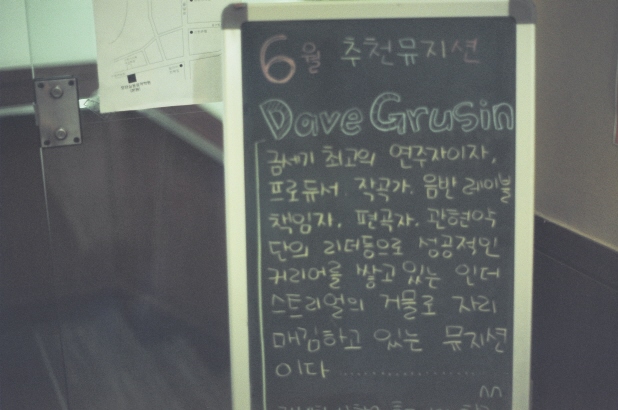 6월 추천뮤지션
Dave Grusin
금세기 최고의 연주자이자,
프로듀서 작곡가, 음반 레이블
책임자, 편곡자, 관현악
단의 리더등으로 성공적인
커리어를 쌓고 있는 인더
스트리얼의 거물로 자리
매김하고 있는 뮤지션
이다 ................